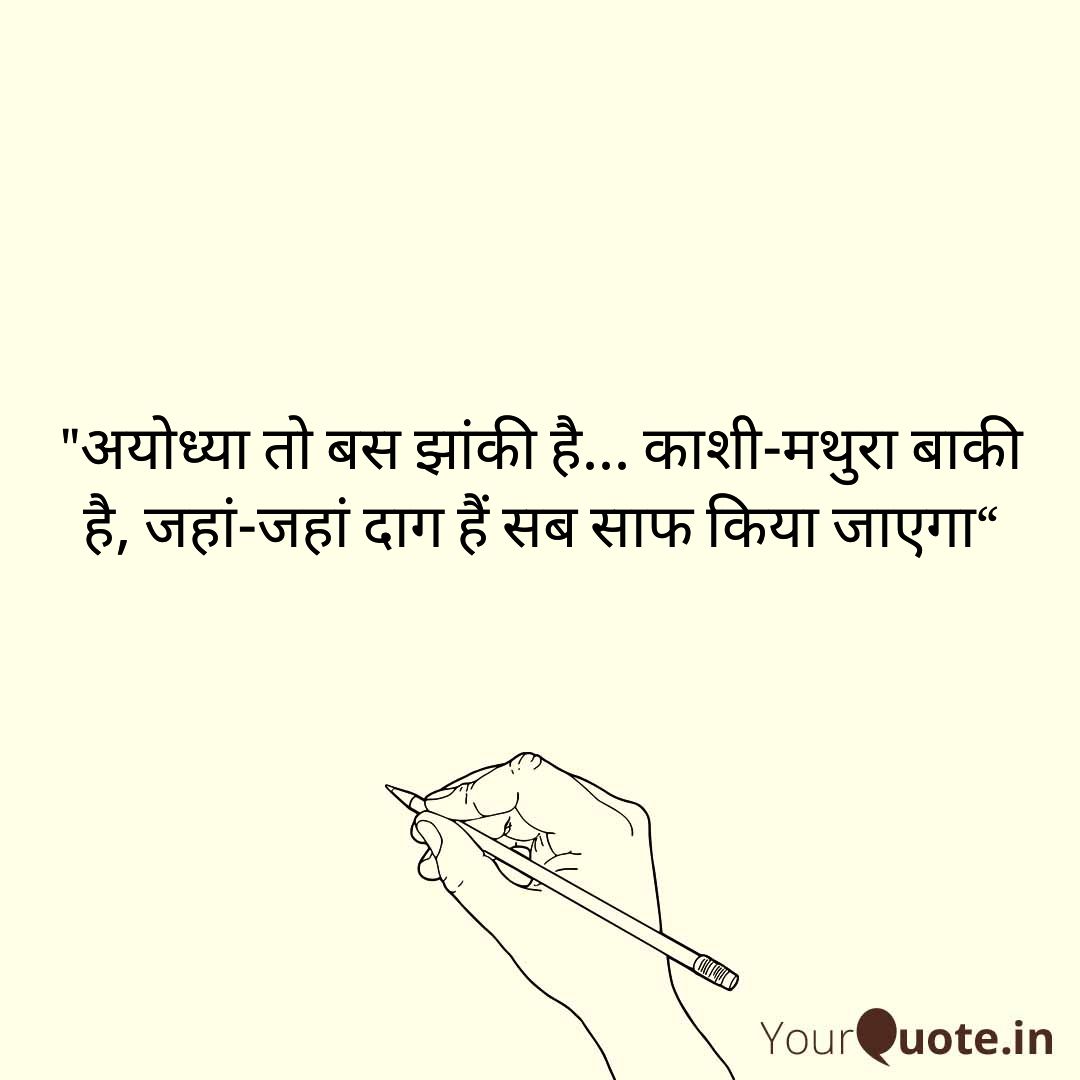 "अयोध्या तो बस झांकी है... काशी-मथुरा बाकी
है, जहां-जहां दाग हैं सब साफ किया जाएगा“
YourQuote.in